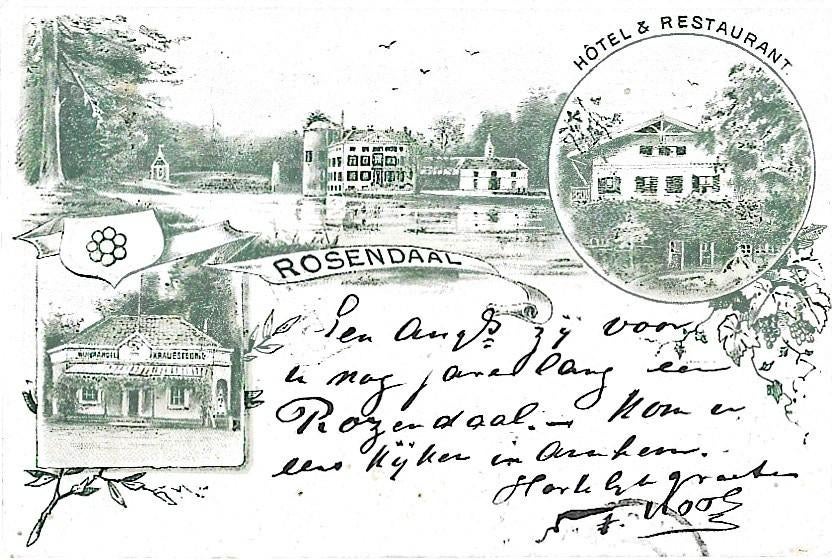 HÔTEL & RESTAURANT
ROSENDAAL
WIJNHANDEL
Een zij voor
u nog jaren lang een
Rozendaal. – Kom er
eens kijken in Arnhem.
Hartelijk groeten